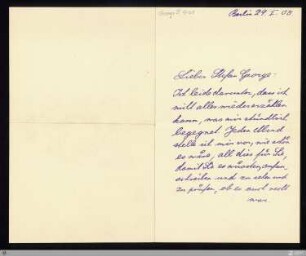 Berlin 29. I. 03
Lieber Stefan George:
Ich leide darunter, dass ich
nicht alles wiedererzählen
kann, was mir stündlich
begegnet. Jeden Abend
stelle ich mir vor, wie schön
es wäre, all dies für Sie,
damit Sie es wüssten,
schreiben und zu
zu prüfen, ob es auch recht
war